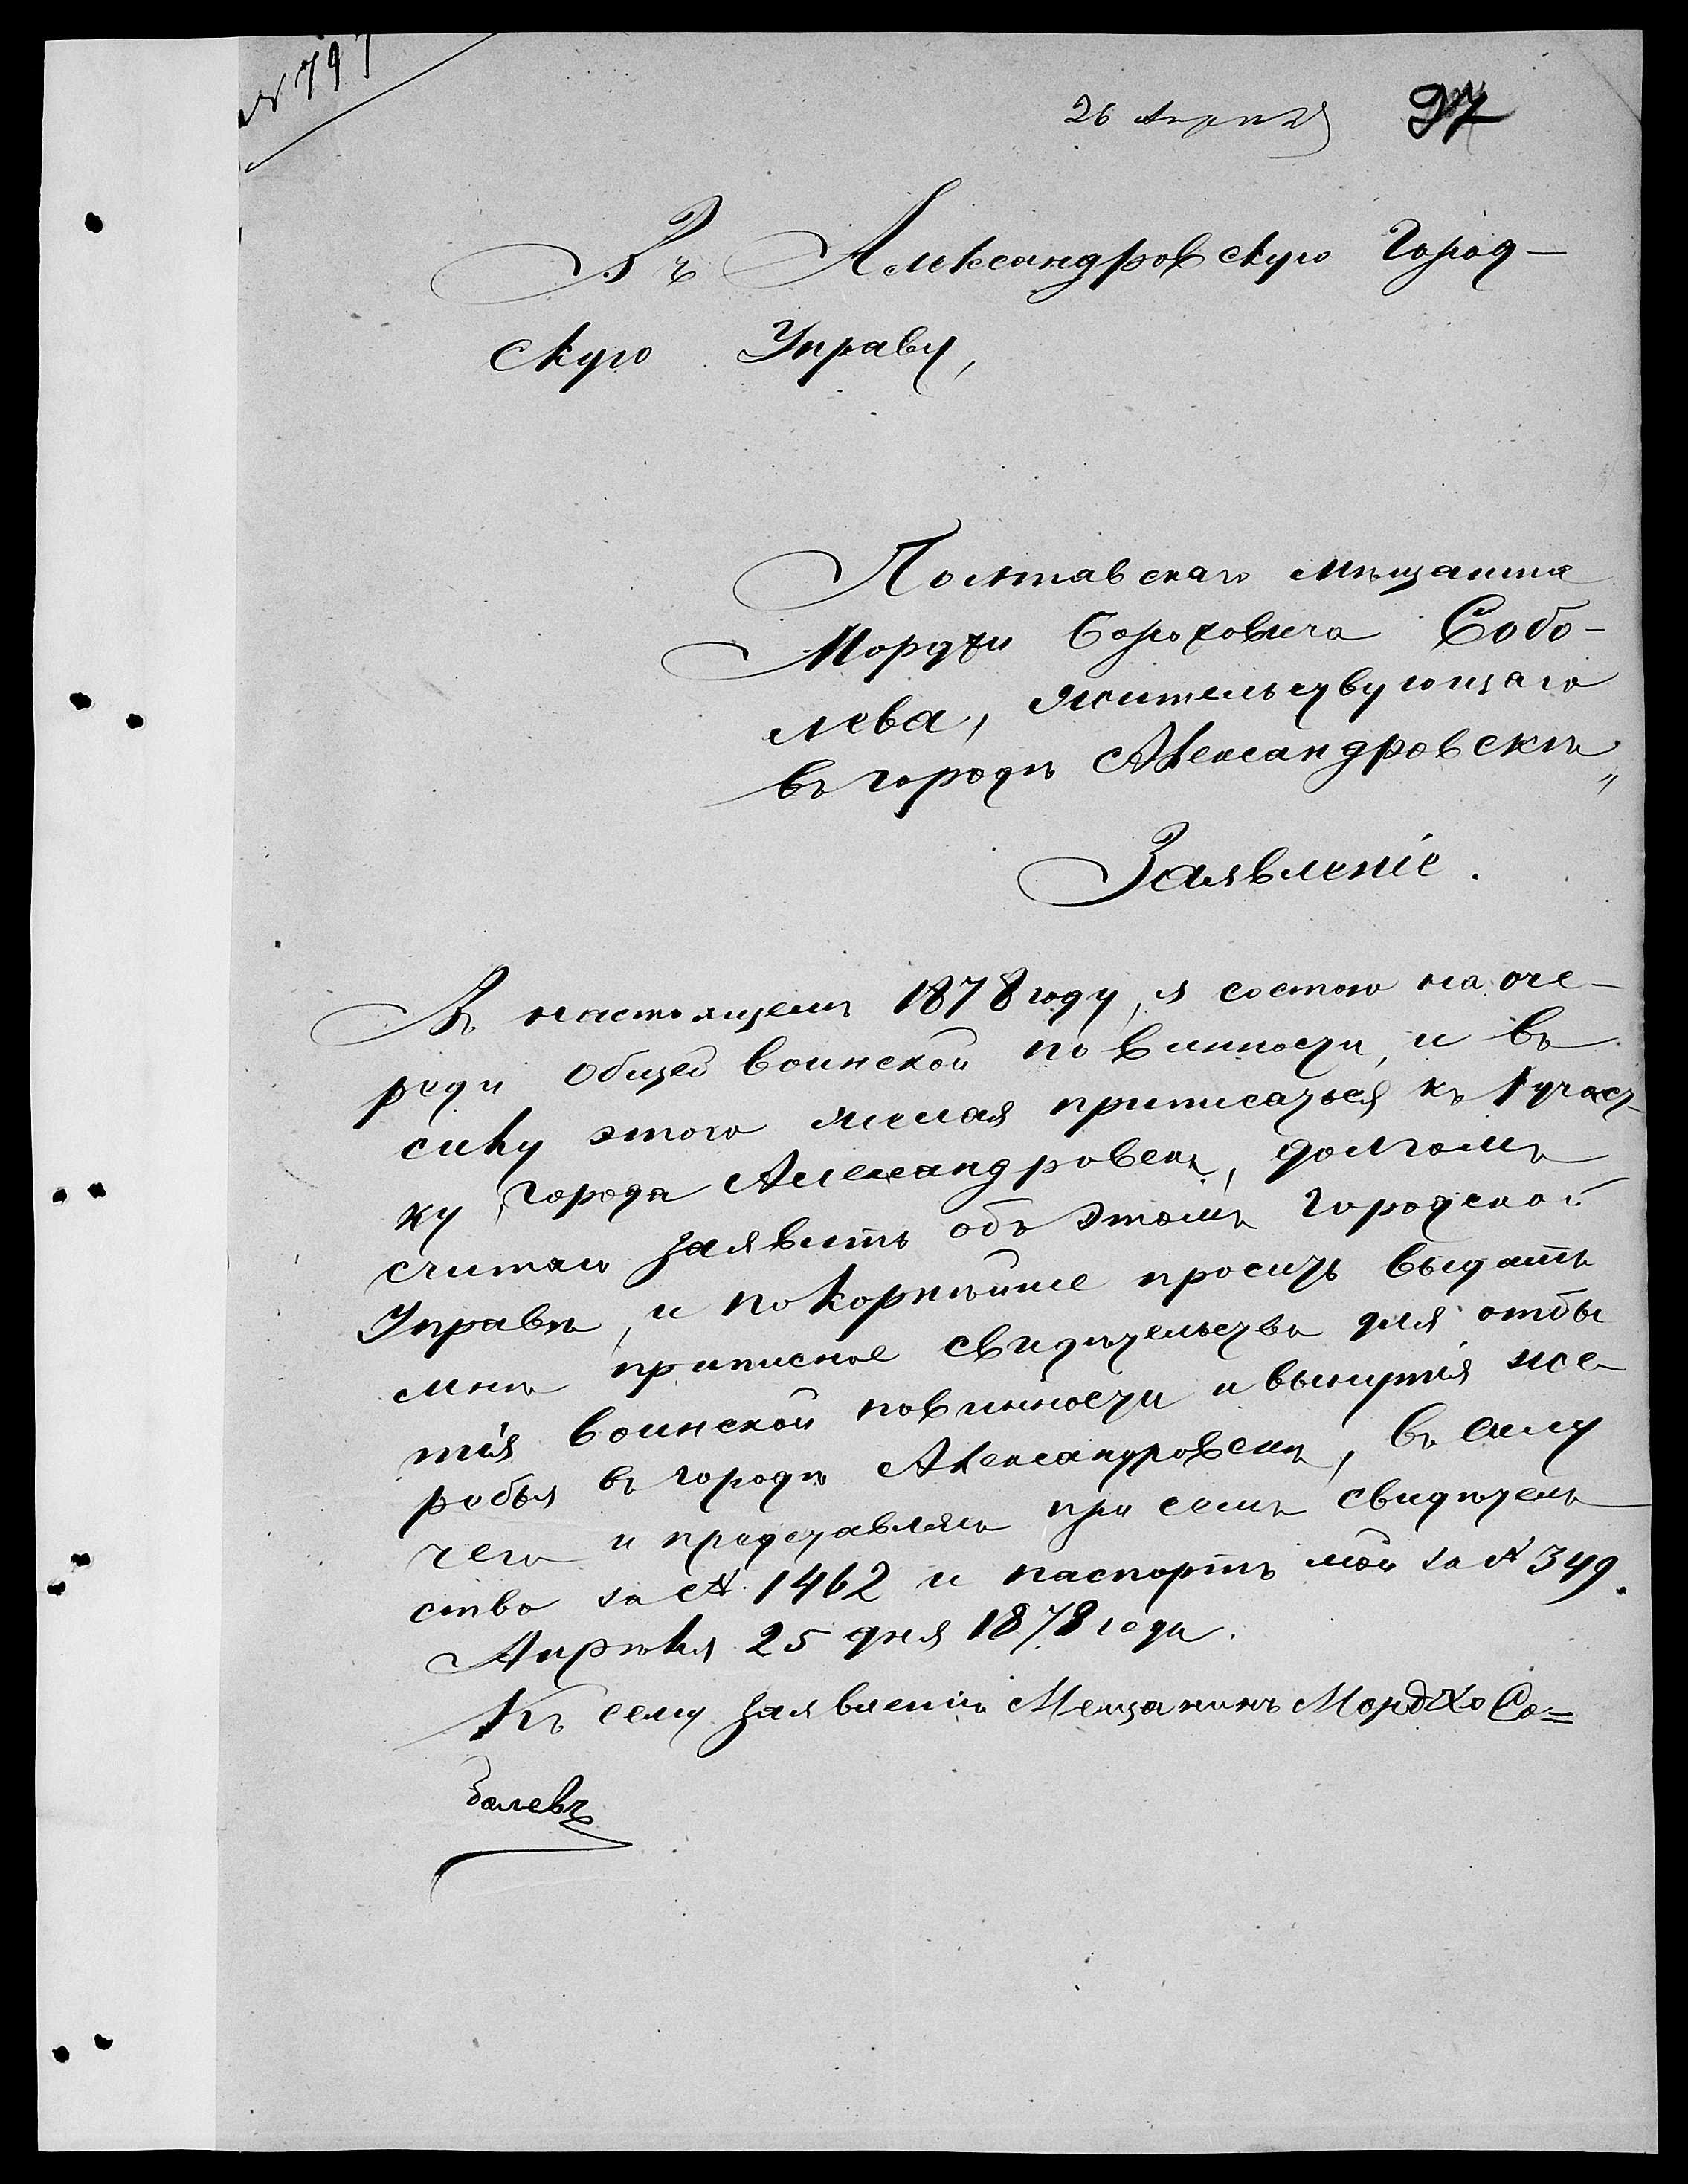 № 797
26 Апреля 97
Въ Александровскую Город-
скую Управу,
Полтавскаго мѣщанина
Мордхи Бороховича Собо-
лева, жительствующаго
въ городѣ Александровскѣ,,
Заявленіе.
Въ настоящемъ 1878 году, я состою на оче-
реди общей воинской повинности, и въ
силу этого желая приписаться къ 1 участ-
ку города Александровска, долгомъ
считаю заявить объ этомъ Городской
Управѣ, и покорнѣйше просить выдать
мнѣ приписное свидѣтельство для отбы
тія воинской повинности и вынутія же-
ребья въ городѣ Александровскѣ, въ силу
чего и представляю при семъ свидѣтель
ство за № 1462 и паспортъ мой за № 349.
Апрѣля 25 дня 1878 года.
Къ сему заявленію Мещанинъ Мордхо Со=
болевъ